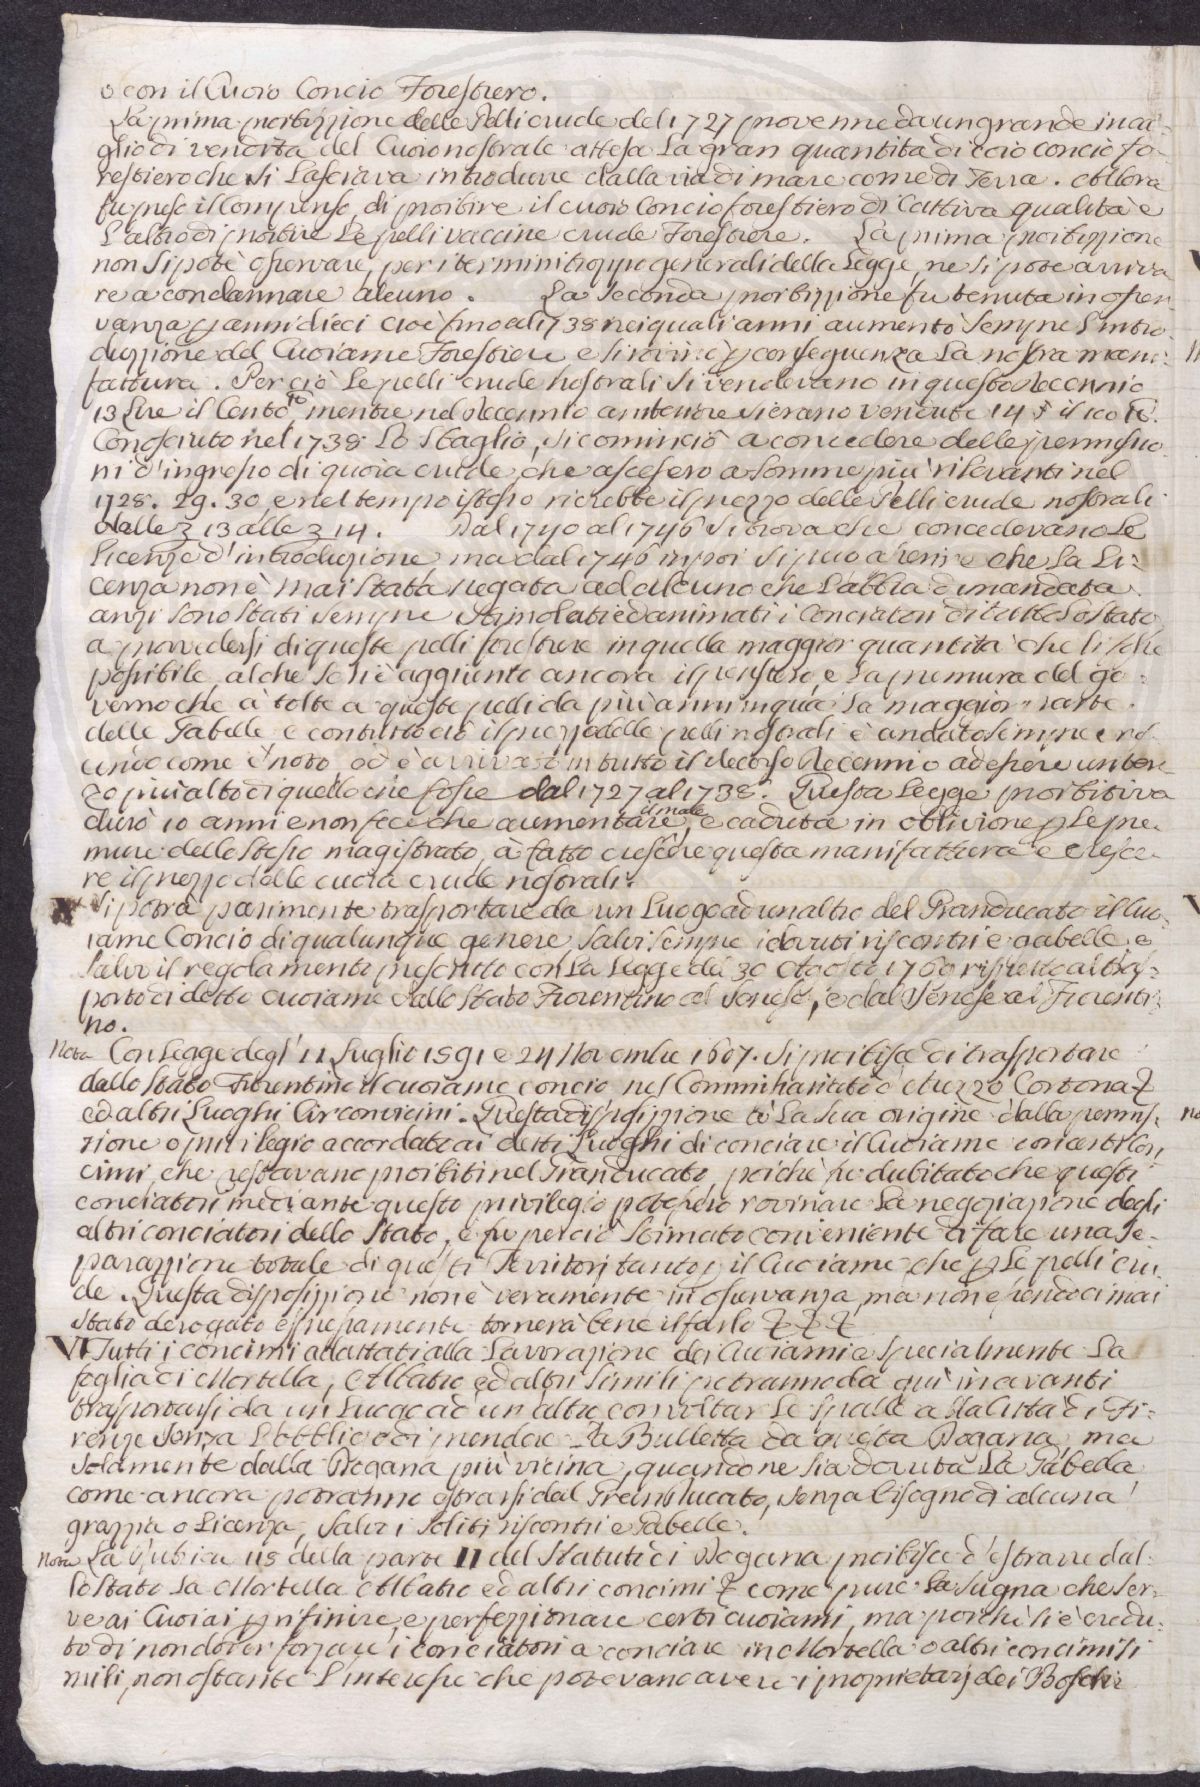 o con il Cuoro Concio Forestiero.
La prima proibizzione delle Pelli crude del 1727 provenne da un grande inca-
glio di vendita del Cuoio nostrale attesa la gran quantità di coio concio fo-
restiero che si lasciava introdurre dalla via di mare come di Terra. Allora
fu preso il Compenso di proibire il cuoio Concio forestiero di Cattiva qualità e
l'altro di proibire le pelli vaccine crude Forestiere. La prima proibizzione
non si potè osservare, per i termini troppo generali della Legge, ne si potè arriva
re a condannare alcuno. La seconda proibizzione fu tenuta in osser
vanza p anni dieci cioè fino al 1738 nei quali anni aumentò sempre l'intro
duzzione del Cuoiame Forestiere e si rovinò p conseguenza la nostra mani-
fattura. Per ciò le pelli crude nostrali si vendevano in questo Decennio
13 Lire il Cento mentre nel Decennio anteriore si erano vendute 14 £ il 100
Conosciuto nel 1738 lo sbaglio, si cominciò a concedere delle permissio
ni d'ingresso di quoia crude, che ascesero a somme più rilevanti nel
1728. 29. 30 e nel tempo istesso ricrebbe il prezzo delle Pelli crude nostrali
dalle £ 13 alle £ 14. Dal 1740 al 1746 si trova che concedevano le
licenze d'introduzzione ma dal 1746 in poi si può asserire che la Li-
cenza non è mai stata negata ad alcuno che l'abbia dimandata
anzi sono stati sempre stimolati ed animati i Conciatori di tutto lo stato
a provvedersi di queste pelli forestiere in quella maggior quantità che li fosse
possibile, al che si è aggiunto ancora il pensiero, e la premura del go-
verno che à tolte a queste pelli da più anni in qua la maggior parte
delle Gabelle e contuttociò il prezzo delle pelli nostrali è andato sempre cre
cendo come è noto ed è arrivato in tutto il decorso Decennio ad essere un ter
zo più alto di quello che fosse dal 1727 al 1738. Questa Legge proibitiva
durò 10 anni e non fece che aumentare il male, e caduta in oblivione p le pre
mure dello stesso magistrato, à fatto crescere questa manifattura e cresce-
re il prezzo delle cuoia crude nostrali.
Si potrà parimente trasportare da un Luogo ad un altro del Granducato il Cuo
iame Concio di qualunque genere salvi sempre i dovuti riscontri e gabelle, e
salvo il regolamento prescritto con la Legge de 30 Agosto 1760 rispetto al tras-
porto di detto cuoiame dallo stato Fiorentino al Senese, e dal Senese al Fiorenti
no.
Nota Con Legge degl' 11 Luglio 1591 e 24 Novembre 1607. si proibisce di trasportare
dallo stato Fiorentino il cuoiame concio nel Comunitativo d'Arezzo Cortona
ed altri Luoghi Circonvicini. Questa disposizzione à la sua origine dalla permis-
sione o privilegio accordato ai detti Luoghi di conciare il Cuoiame con certi Con
cimi che restavano proibiti nel Granducato, poichè fu dubitato che questi
conciatori mediante questo privilegio potessero rovinare la negoziazione degli
altri conciatori dello stato, e fu perciò stimato conveniente di fare una se-
parazzione totale di questi Territori tanto p il Cuoiame che p le pelli cru
de. Questa disposizzione non è veramente in osservanza, ma non essendoci mai
stato derogato espressamente tornerà bene il farlo
VI Tutti i concimi adattati alla Lavorazione dei Cuoiami e specialmente la
foglia di Mortella, Albatro ed altri simili potranno da qui in avanti
trasportarsi da un Luogo ad un altro con voltar le spalle alla Città di Fi-
renze senza l'obbligo di prendere la Bulletta da questa Dogana, ma
solamente dalla Dogana più vicina, quando ne sia dovuta la Gabella
come ancora potranno estrarsi dal Granducato, senza bisogno di alcuna
grazzia o Licenza, salvi i soliti riscontri e Gabelle.
Nota La Rubrica 118 della parte II del Statuti di Dogana proibisce d'estrarre dal-
lo stato la Mortella Albatro ed altri concimi come pure la sugna che ser-
ve ai Cuoiai p rifinire, e perfezzionare certi cuoiami, ma perchè si è credu-
to di non dover forzare i conciatori a conciare in Mortella o altri concimi si
mili, non ostante l'interesse che potevano avere i proprietarj dei Boschi